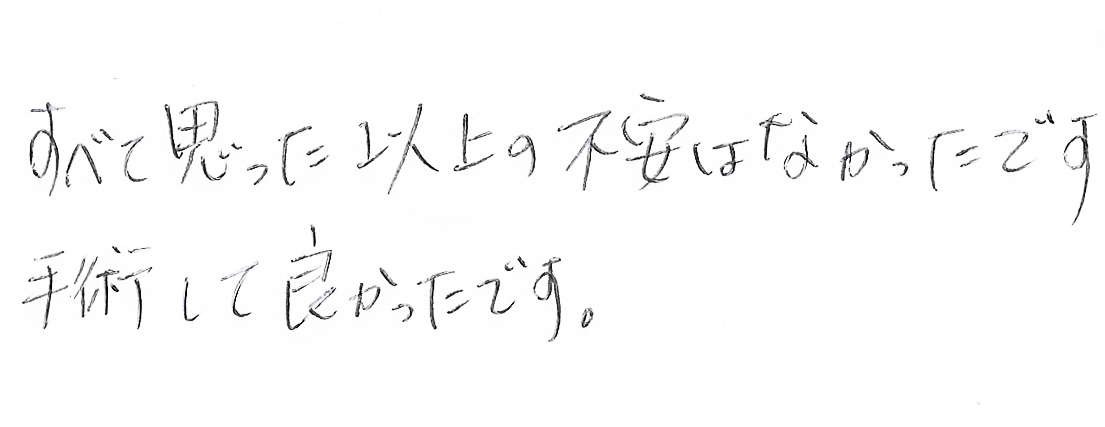 すべて思った以上の不安はなかったです
手術して良かったです。